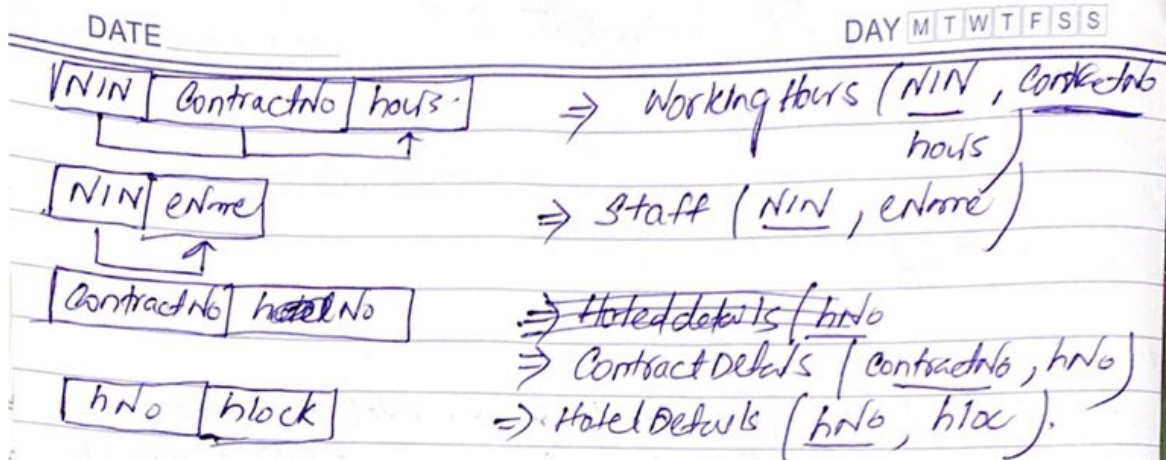 DATE DAY M T W T F S S
NIN ContractNo hours. ⇒ Working Hours (NIN, ContractNo
hours)
NIN eName ⇒ Staff (NIN, eName)
ContractNo hNo ⇒ Hoteldetails (hNo
⇒ ContractDetals (contractNo, hNo)
hNo hlock ⇒ Hotel Details (hNo, hloc).